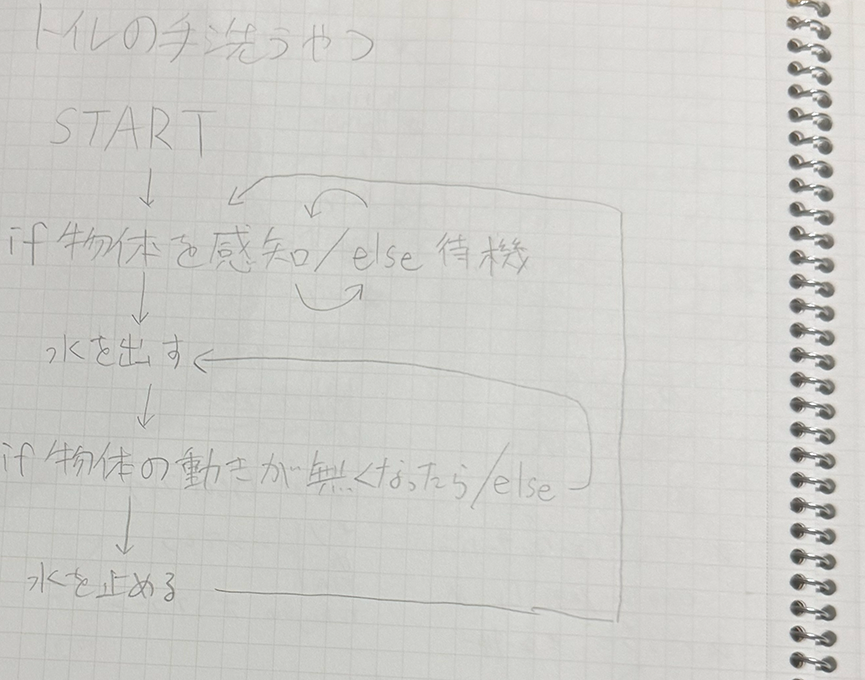 トイレの手洗うやつ
START
if 物体を感知/else 待機
水を出す
if 物体の動きが無くなったら/else
水を止める